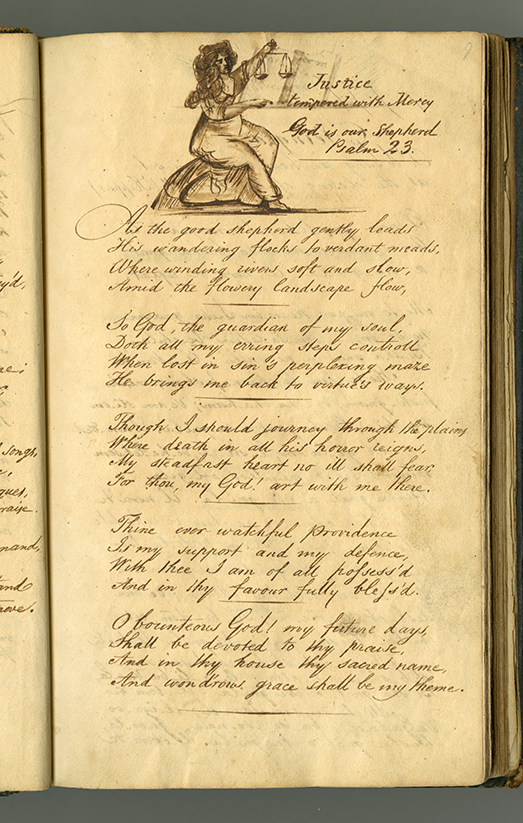 Justice
tempered with Mercy
God is our Shepherd
Psalm 23.
As the good shepherd gently leads
His wandering flocks to verdant meads,
Where winding rivers, soft and slow,
Amid the flowery landscape flow,
So God, the guardian of my soul,
Doth all my erring steps controll
When lost in sin's perplexing maze
He brings me back to virtue's ways.
Though I should journey through the plains
Where death in all his horror reigns,
My steadfast heart no ill shall fear,
For thou, my God! art with me there.
Thine ever watchful providence
Is my support and my defence,
With thee I am of all possess'd
And in thy favour fully bless'd.
O bounteous God! my future days,
Shall be devoted to thy praise,
And in thy house thy sacred name,
And wondrows grace shall be my theme.
y'd,
e;
songs,
praise.
mand,
tand
rove.